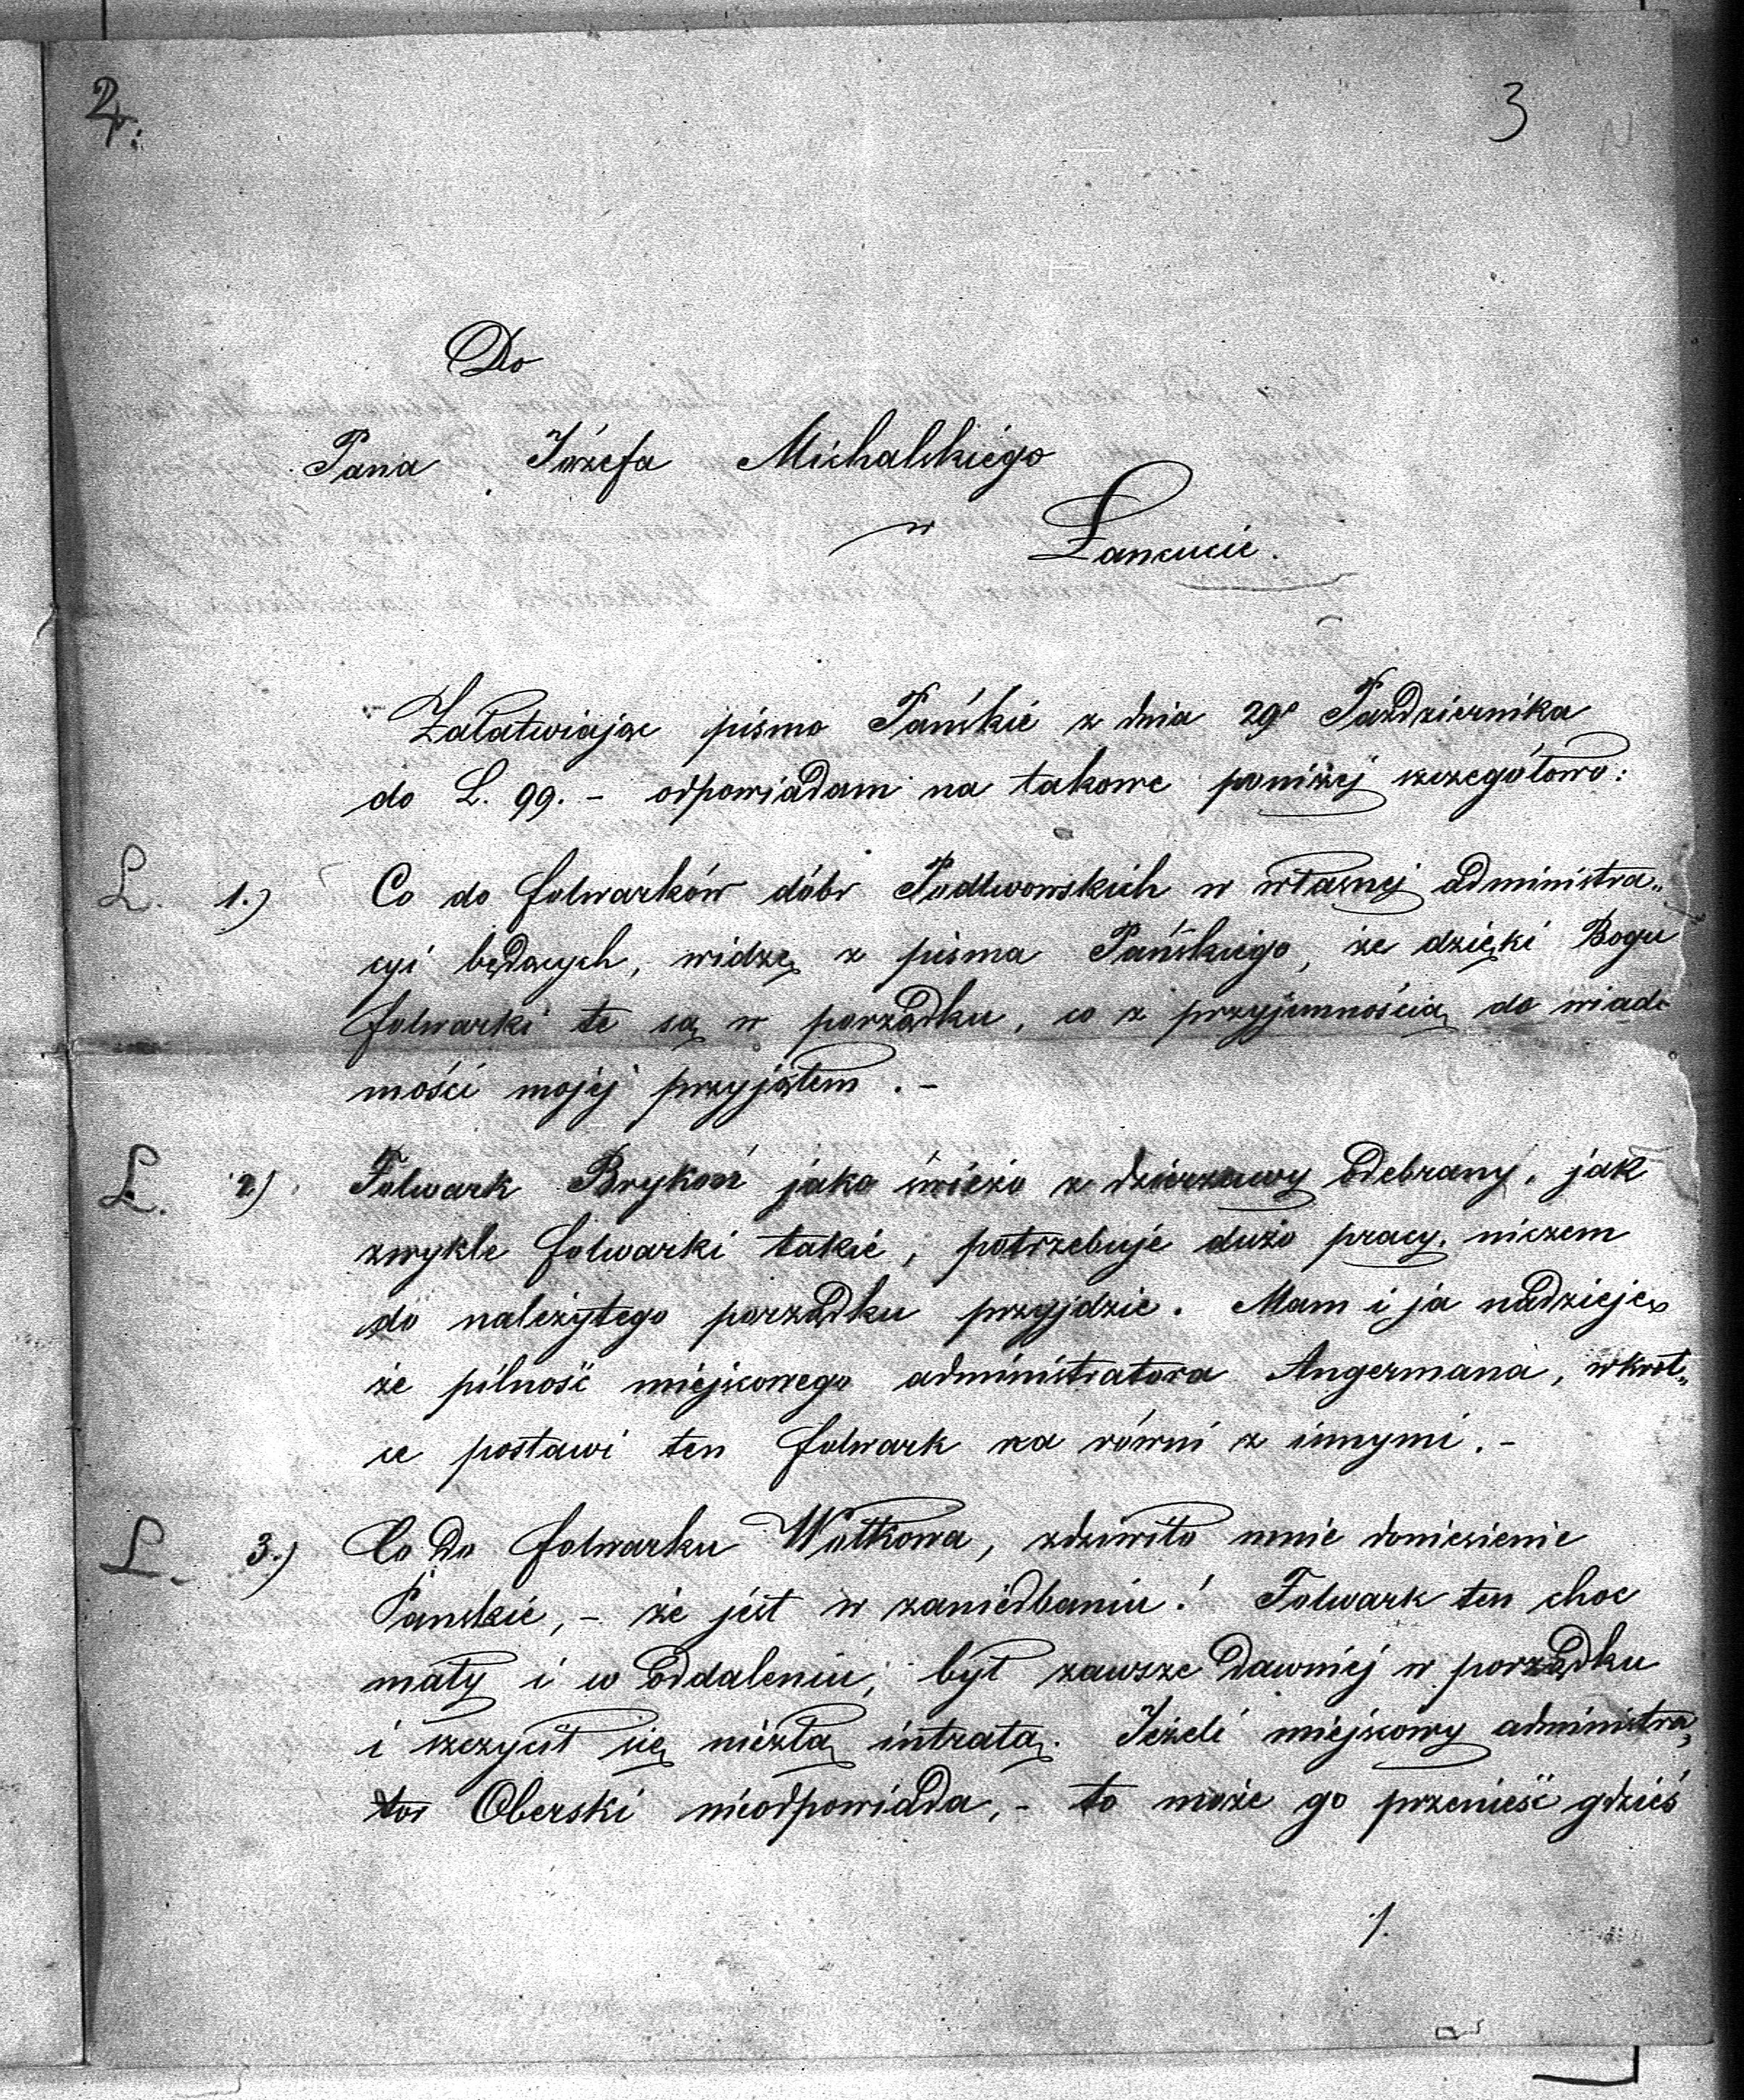 2.
3
Do
Pana Józefa Michalskiego
w Łancucie.
Załatwiając pismo Pańskie z dnia 29º Października
do L. 99. – odpowiadam na takowe poniżej szczegółowo:
L. 1.) Co do folwarków dóbr Podlwowskich w własnej administra„
cyi będących, widzę z pisma Pańskiego, że dzięki Bogu
folwarki te są w porządku, co z przyjemnością do wiado
mości mojej przyjąłem. –
L. 2) Folwark Brykoń jako świeżo z dzierzawy odebrany, jak
zwykle folwarki takie, potrzebuje dużo pracy, niezem
do należytego porządku przyjdzie. Mam i ja nadzieję
że pilność miejscowego administratora Angermana, wkrot„
ce postawi ten folwark na równi z innymi. –
L. 3.) Co do folwarku Wołkowa, zdziwiło mnie doniesienie
Panskie, – że jest w zaniedbaniu! Folwark ten choc
mały i w oddaleniu, był zawsze dawniej w porządku
i szczycił się niezłą intratą. Jeżeli miejscowy administra„
tor Oberski nieodpowiada, – to może go przenieść gdzieś
./.